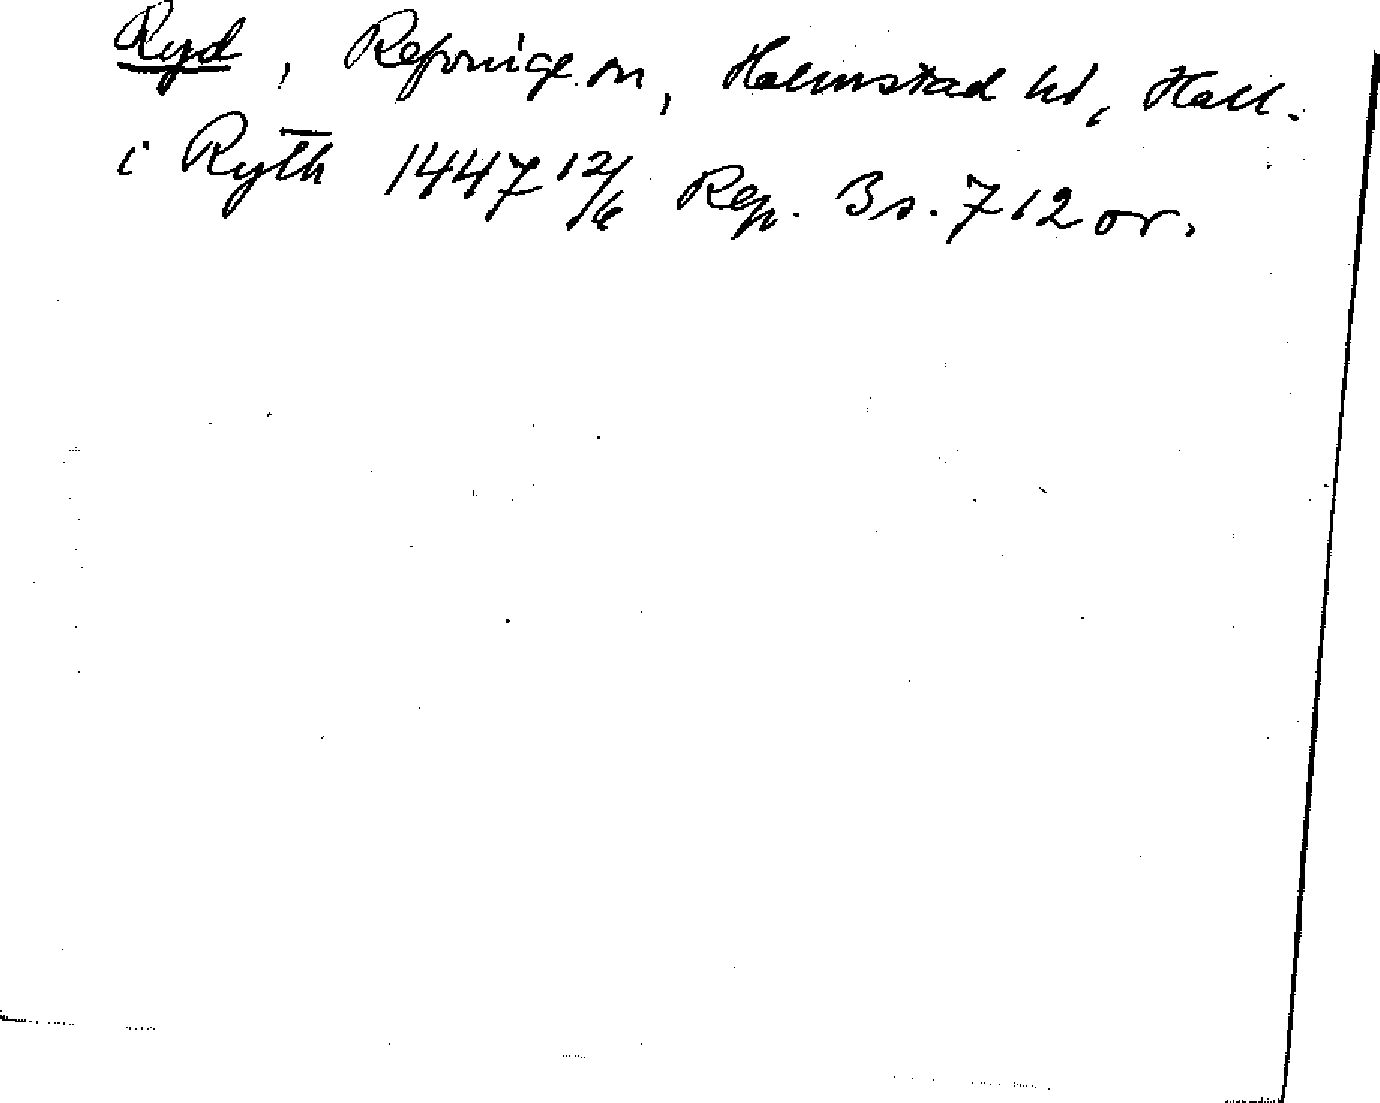 Ryd, Refvinge sn, Halmstad hd, Hall.
i Ryth 1447 12/6 Rep. 3 s. 712 or.